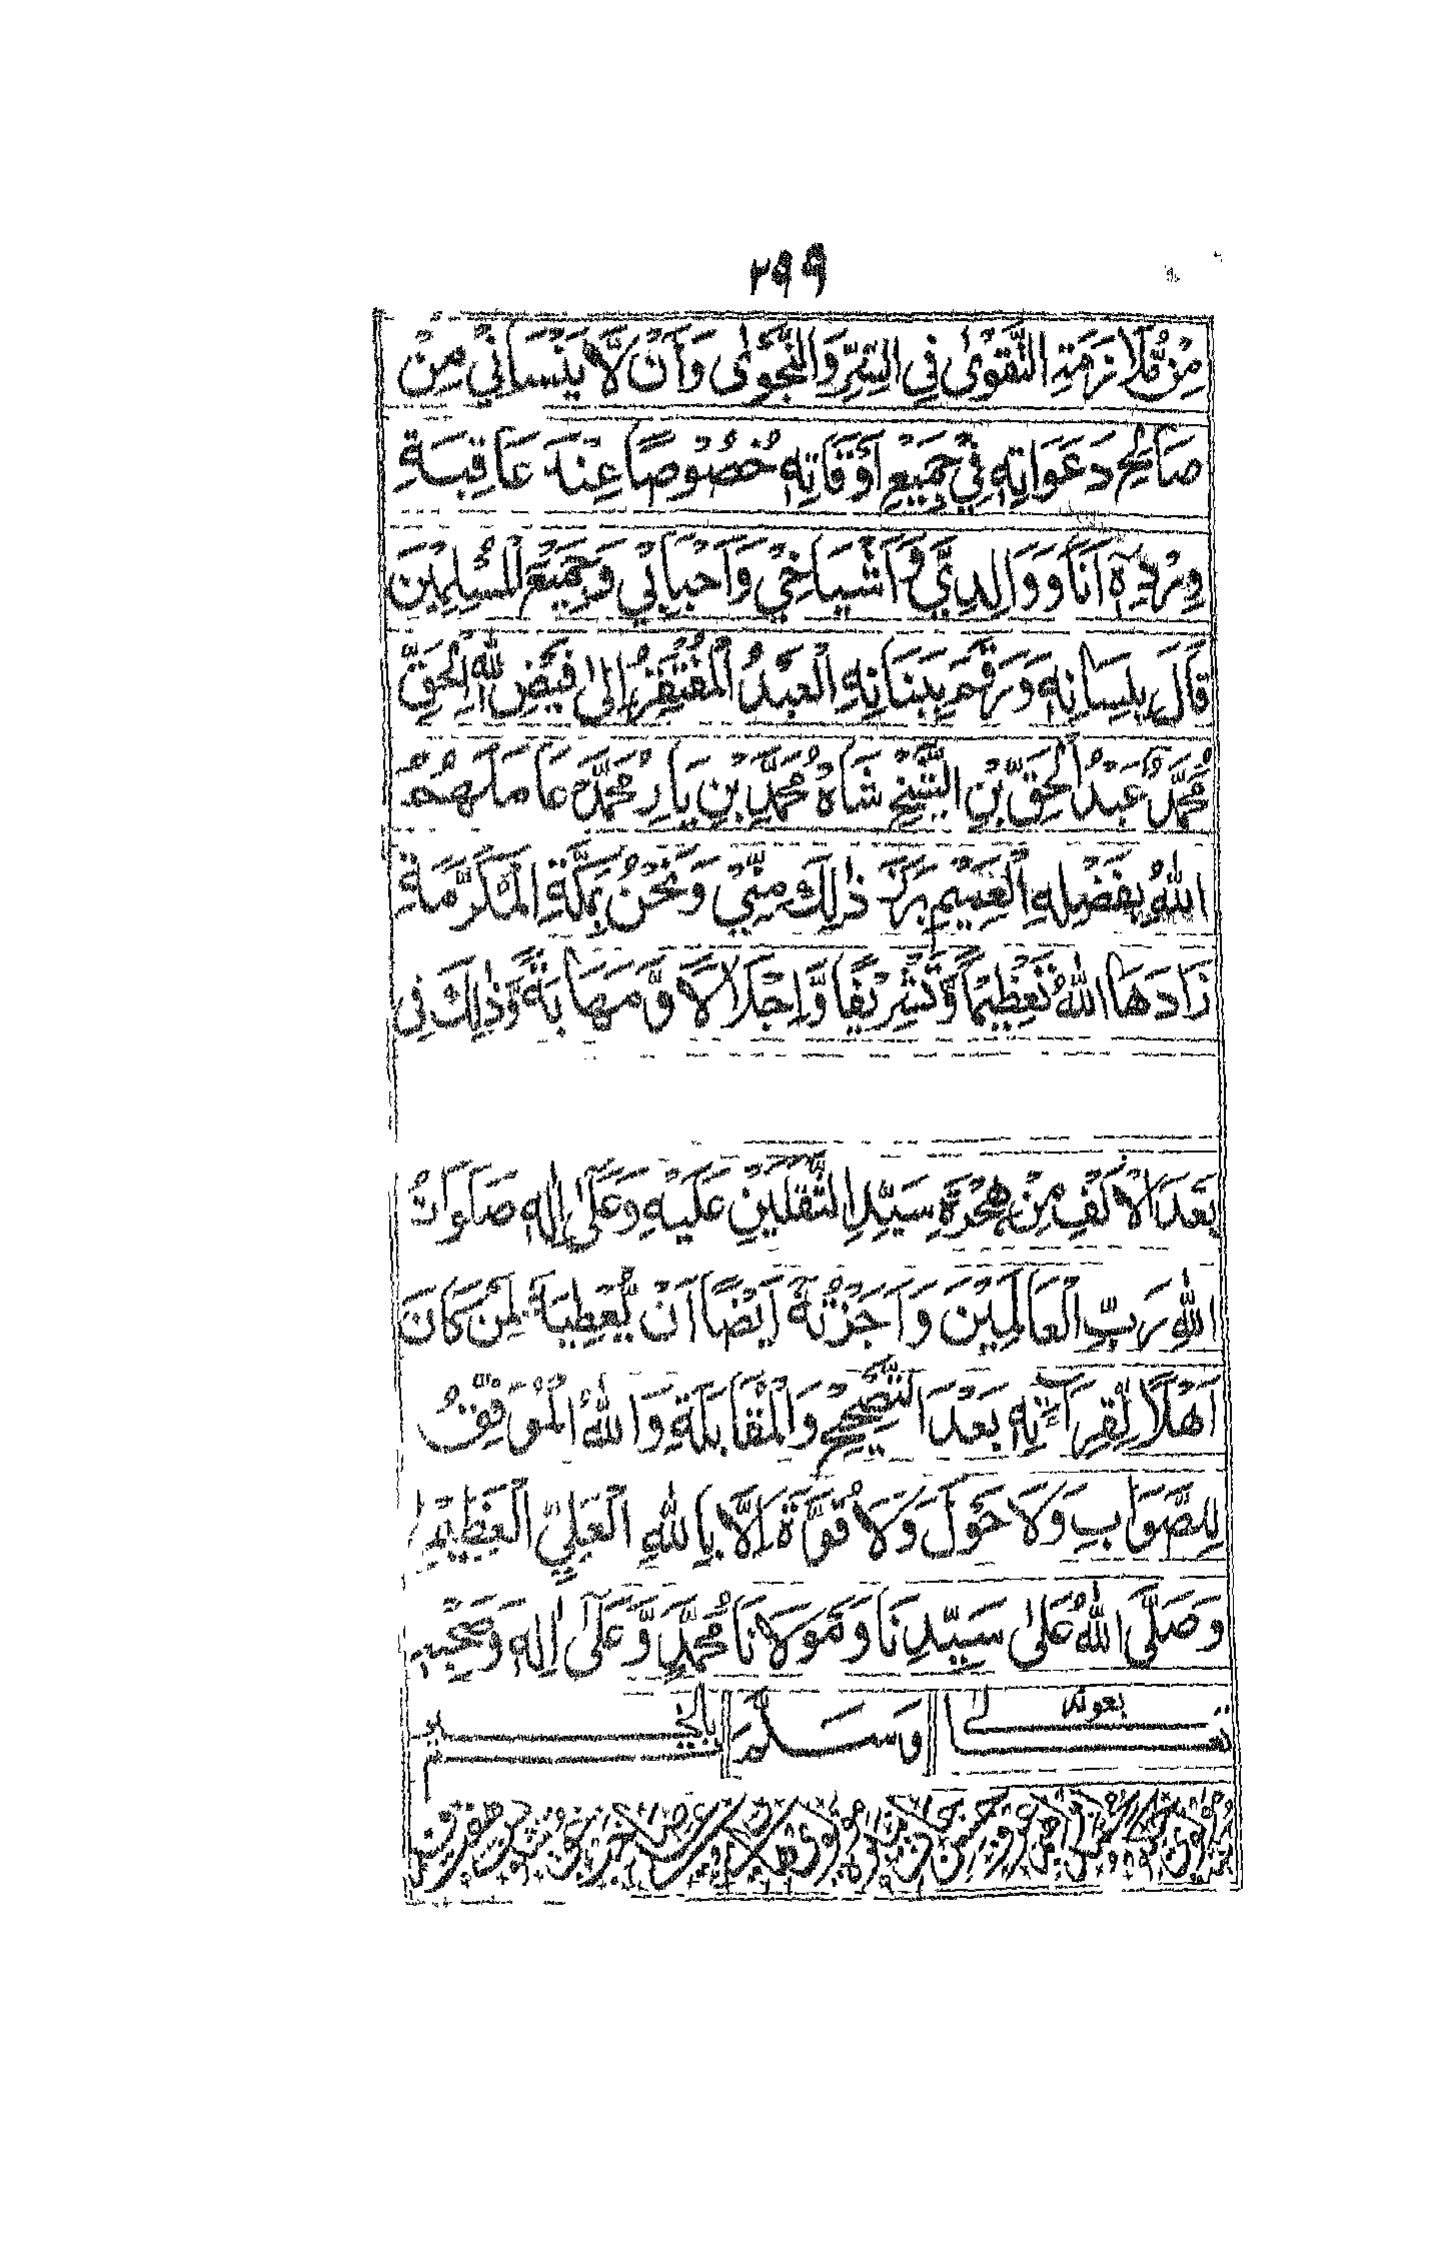 ٢٩٩
مِنْ مُّلَازَمَةِ التَّقْوٰى فِي السِّرِّ وَالنَّجْوٰى وَاَنْ لَّا يَنْسَانِيْ مِنْ
صَالِحِ دَعَوَاتِهٖ فِيْ جَمِيْعِ اَوْقَاتِهٖ خُصُوْصًا عِنْدَ عَاقِبَةِ
وِرْدِهٖ اَنَا وَوَالِدِيَّ وَاَشْيَاخِيْ وَاَحْبَابِيْ وَجَمِيْعُ الْمُسْلِمِيْنَ
قَالَ بِلِسَانِهٖ وَرَقَمَ بِبَنَانِهِ الْعَبْدُ الْمُفْتَقِرُ اِلٰى فَيْضِ اللّٰهِ الْحَقِّ
مُحَمَّدْ عَبْدُ الْحَقِّ بْنِ الشَّيْخِ شَاهْ مُحَمَّدِ بْنِ يَارْ مُحَمَّدْ عَامَلَهُمُ
اللّٰهُ بِفَضْلِهِ الْعَمِيْمِ بَرَزَ ذٰلِكَ مِنِّيْ وَنَحْنُ بِمَكَّةِ الْمُكَرَّمَةِ
زَادَهَا اللّٰهُ تَعْظِيْمًا وَّتَشْرِيْفًا وَّاِجْلَالًا وَّمَهَابَةً وَّذٰلِكَ فِى
بَعْدَ الْاَلْفِ مِنْ هِجْرَةِ سَيِّدِ الثَّقَلَيْنِ عَلَيْهِ وَعَلٰى اٰلِهٖ صَلَوَاتُ
اللّٰهِ رَبِّ الْعَالَمِيْنَ وَاَجَزْتُهٗ اَيْضًا اَنْ يُّعْطِيَهٗ لِمَنْ كَانَ
اَهْلًا لِّقِرَآءَتِهٖ بَعْدَ التَّصْحِيْحِ وَالْمُقَابَلَةِ وَاللّٰهُ الْمُوَفِّقُ
لِلصَّوَابِ وَلَا حَوْلَ وَلَا قُوَّةَ اِلَّا بِاللّٰهِ الْعَلِيِّ الْعَظِيْمِ
وَصَلَّى اللّٰهُ عَلٰى سَيِّدِنَا وَمَوْلَانَا مُحَمَّدٍ وَّعَلٰى اٰلِهٖ وَصَحْبِهٖ
بعونه وَسَلَّمَ بالخير